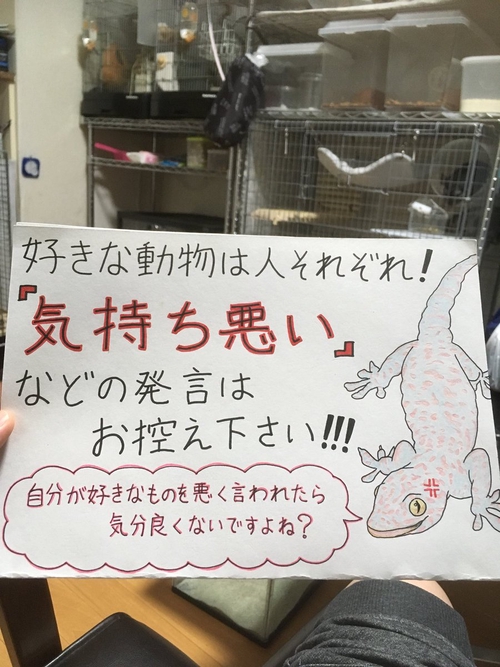 好きな動物は人それぞれ!
『気持ち悪い』
などの発言は
お控え下さい!!!
自分が好きなものを悪く言われたら
気分良くないですよね?